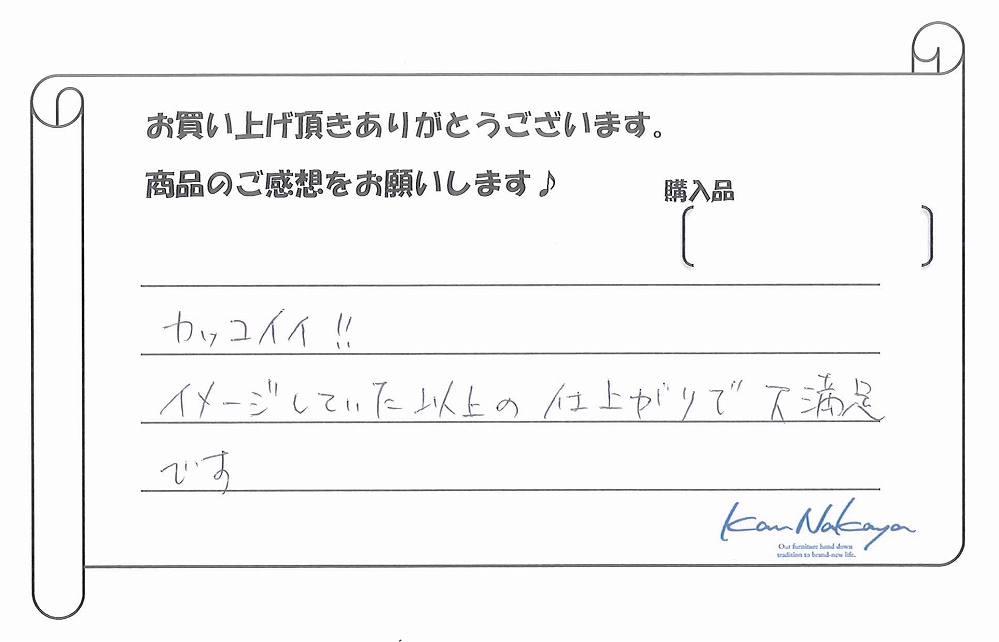 お買い上げ頂きありがとうございます。
商品のご感想をお願いします♪
購入品
カッコイイ!!
イメージしていた以上の 仕上がりで 大満足
です
Kan Nakaya
Our furniture hand down
tradition to brand-new life.